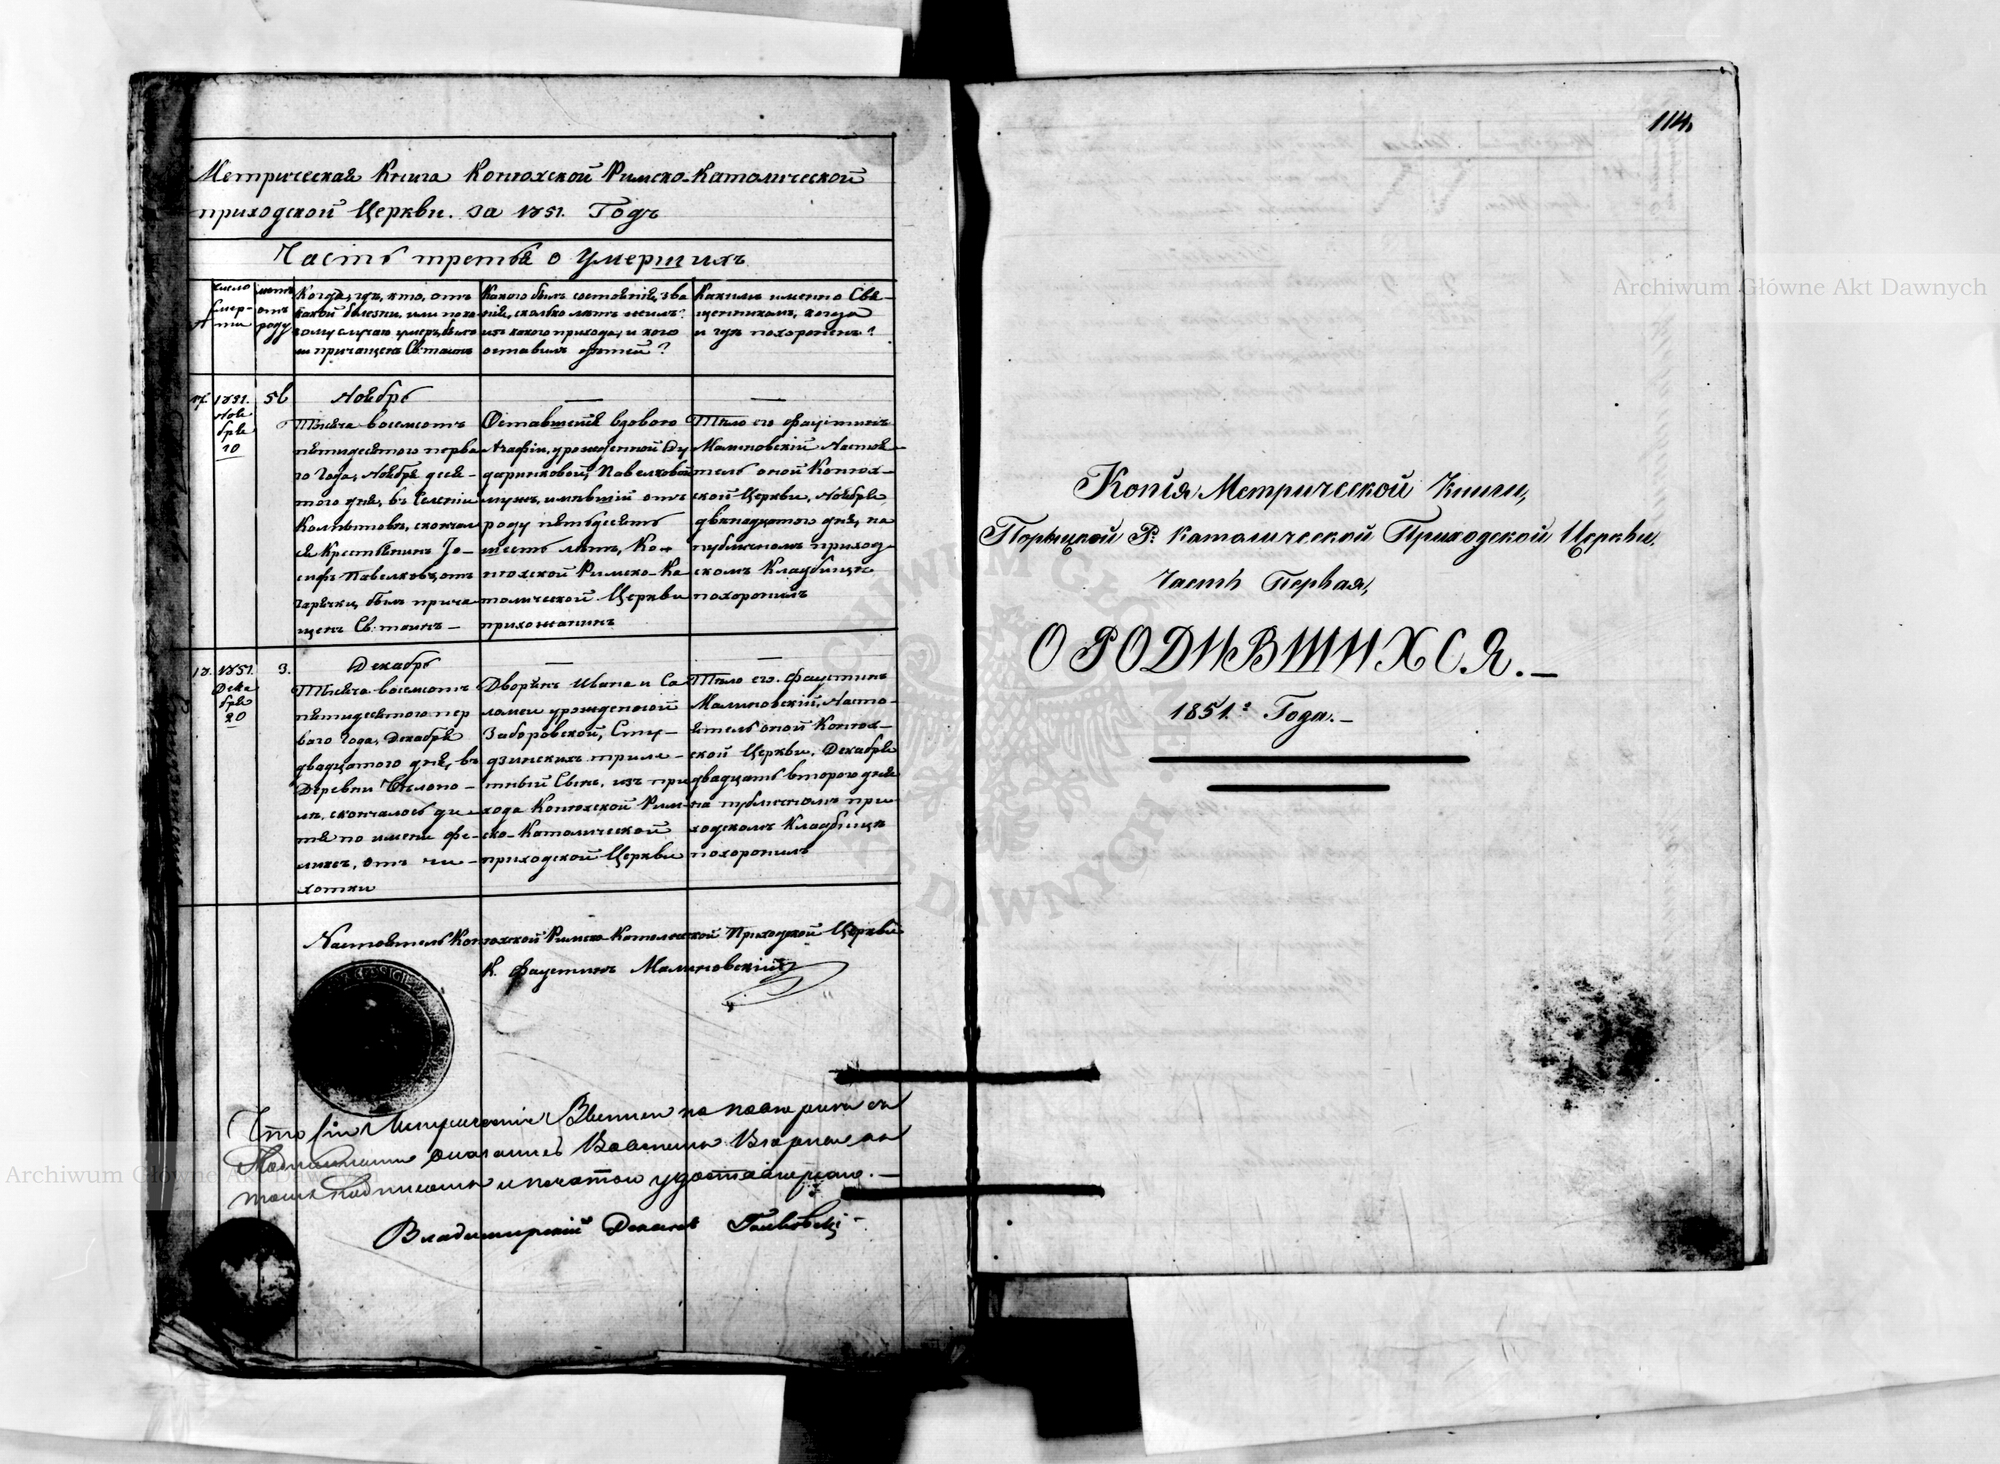 Метрическая Книга Конюхской Римско-Католической
приходской Церкви. За 1851. Годъ
Часть третья о умершихъ
№
Число
Смер-
ти
Летъ
отъ
роду
Когда, гдѣ, кто, отъ
какой болезни, или пото-
ему случаю умеръ, былъ
ли причащенъ Св: таинъ
Какого былъ состоянія, зва-
нія, сколько летъ жилъ?
изъ какого прихода, и кого
оставилъ детей?
Какимъ именно Свя-
щенникомъ, когда
и гдѣ похороненъ?
17.
1851.
Ноя
бря
10
56
Ноябрь
Тысяча восемсотъ
пятидесятого перва
го Года, Ноября деся-
того дня, въ Селеніи
Колпытовъ, скончал
ся Крестьянинъ Іо-
сифъ Павелковъ, отъ
горячки, былъ прича
щенъ Св: таинъ —
—
Оставшейся вдовою
Агафіи, урожденной Ду
Павелкова
мужъ, имѣвшій отъ
роду пятьдесятъ
шесть летъ, Ко-
нюхской Римско-Ка
толической Церкви
прихожанинъ
—
Тѣло его Фаустинъ
Малиновскій Настоя-
тель оной Конюх-
ской Церкви, Ноября
двенадцатого дня, на
публичномъ приход-
скомъ Кладбищѣ
похоронилъ
18.
1851.
Дека
бря
20
3.
Декабрь
Тысяча восемсотъ
пятидесятого пер
вого Года, Декабря
двадцатого дня, въ
Деревни
скончалось ди-
тя по имени Фе-
ликсъ, отъ чи-
хотки
—
Дворянъ Ивана и Са
ломеи урожденной
Заборовской, Сту-
дзинскихъ триле-
тный Сынъ, изъ при
хода Конюхской Рим-
ско-Католической
приходской Церкви
—
Тѣло его Фаустинъ
Малиновскій, Насто-
ятель оной Конюх-
ской Церкви, Декабря
двадцать второго дня
на публичномъ при-
ходскомъ Кладбищѣ
похоронилъ
Настоятель Конюхской Римско-Католической Приходской Церкви
К. Фаустинъ Малиновскій
и печатью удостоверяю. —
Владимирскій Деканъ
114.
Копія Метрической Книги,
Порыцкой Р: Католической Приходской Церкви,
Часть Первая,
О РОДИВШИХСЯ. —
1851.г Года. —
Archiwum Główne Akt Dawnych
Archiwum Główne Akt Dawnych
ARCHIWUM GŁÓWNE AKT DAWNYCH